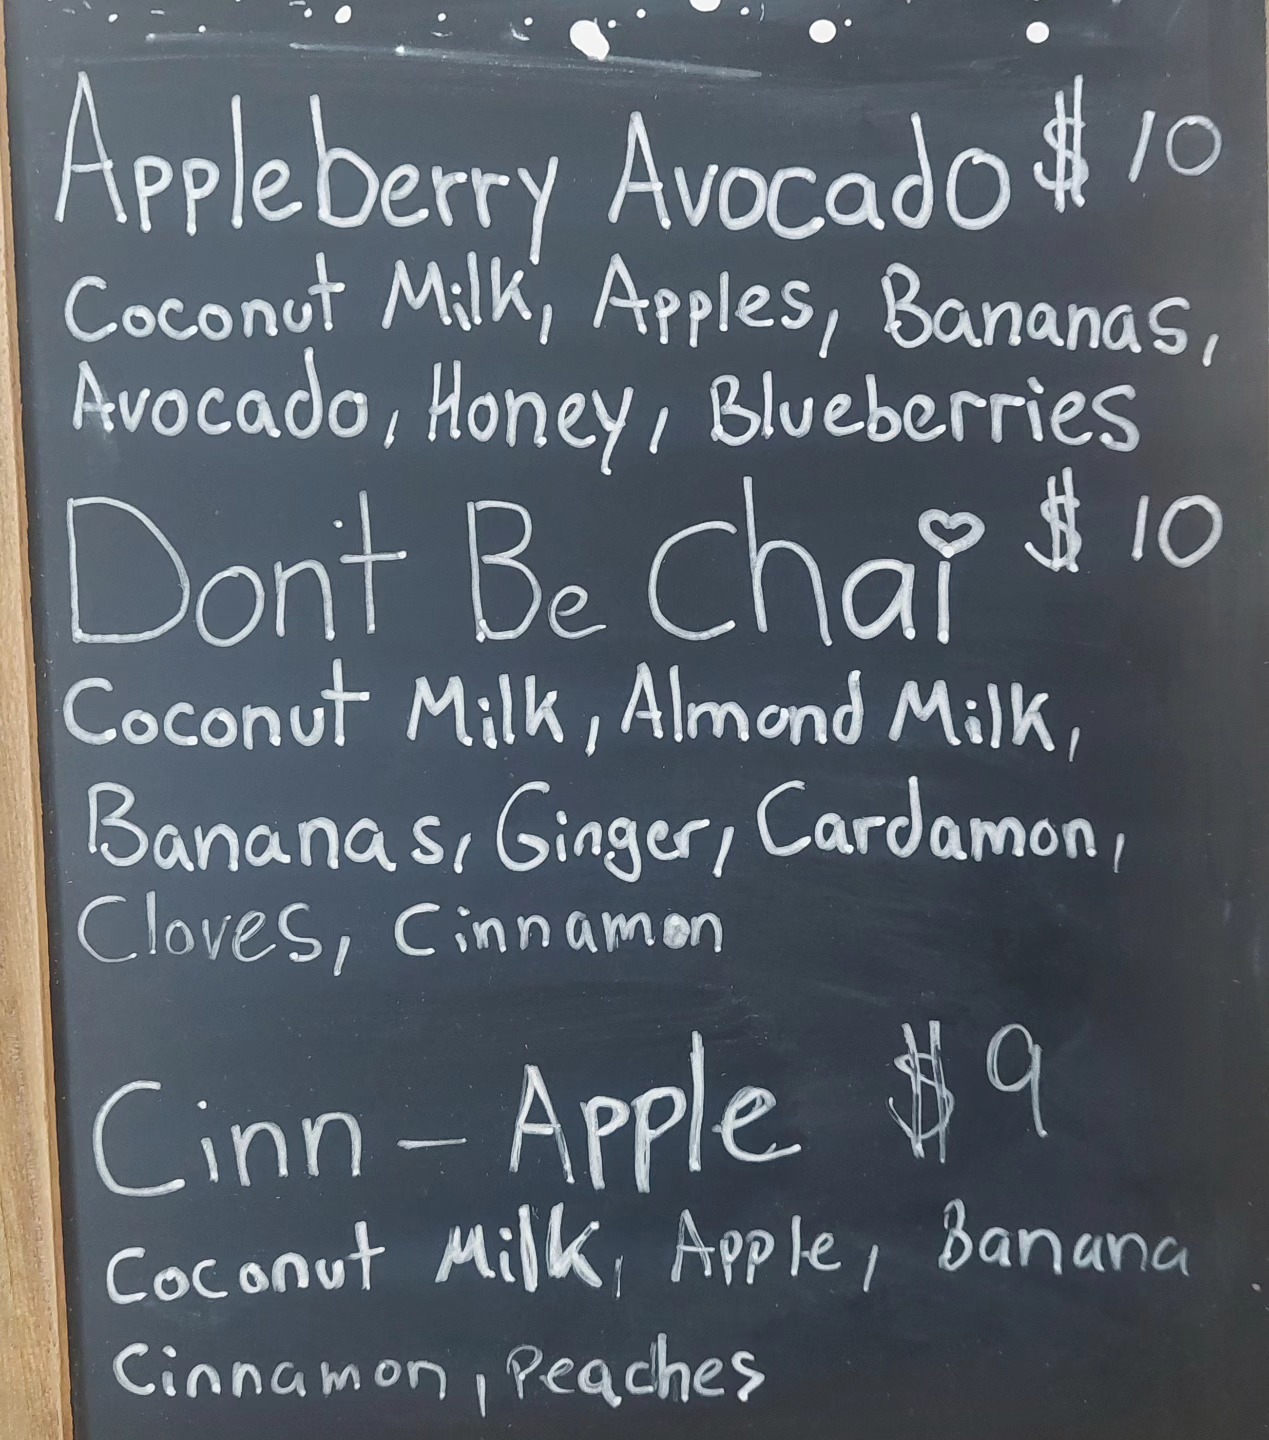 Appleberry Avocado $ 10
Coconut Milk, Apples, Bananas,
Avocado, Honey, Blueberries
Don't Be Chai $ 10
Coconut Milk, Almond Milk,
Bananas, Ginger, Cardamon,
Cloves, Cinnamon
Cinn - Apple $ 9
Coconut Milk, Apple, Banana
Cinnamon, Peaches